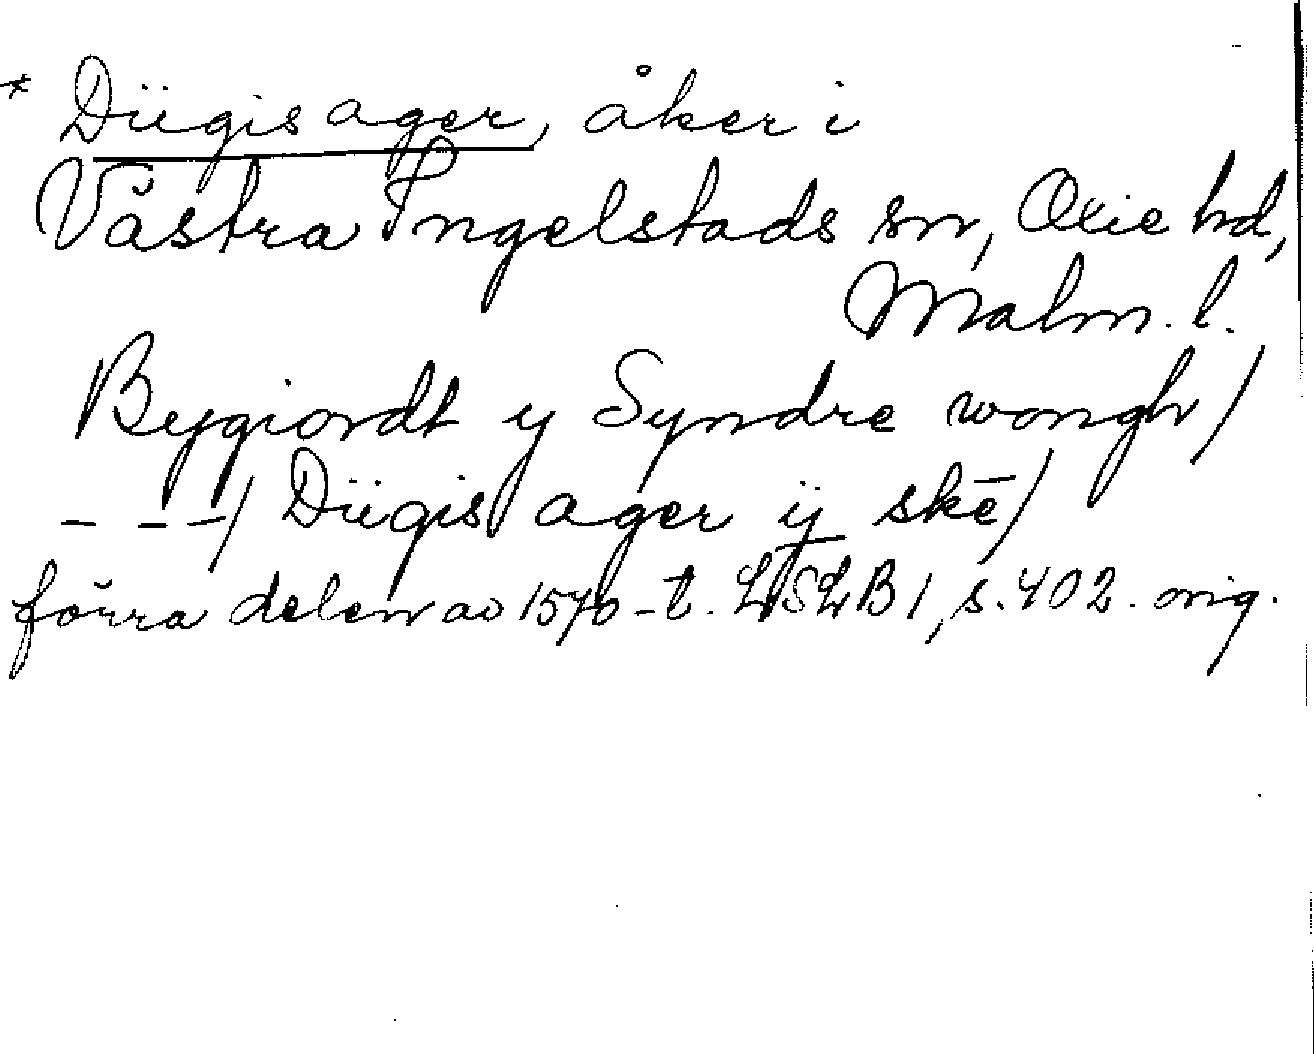 * Diigis ager, åker i
Västra Ingelstads sn, Oxie hd,
Malm. l.
Bygiordt y Syndre wongh/
- - -/ Diigis ager ij skē/
förra delen av 1570-t. LSLB 1, s. 402. orig.